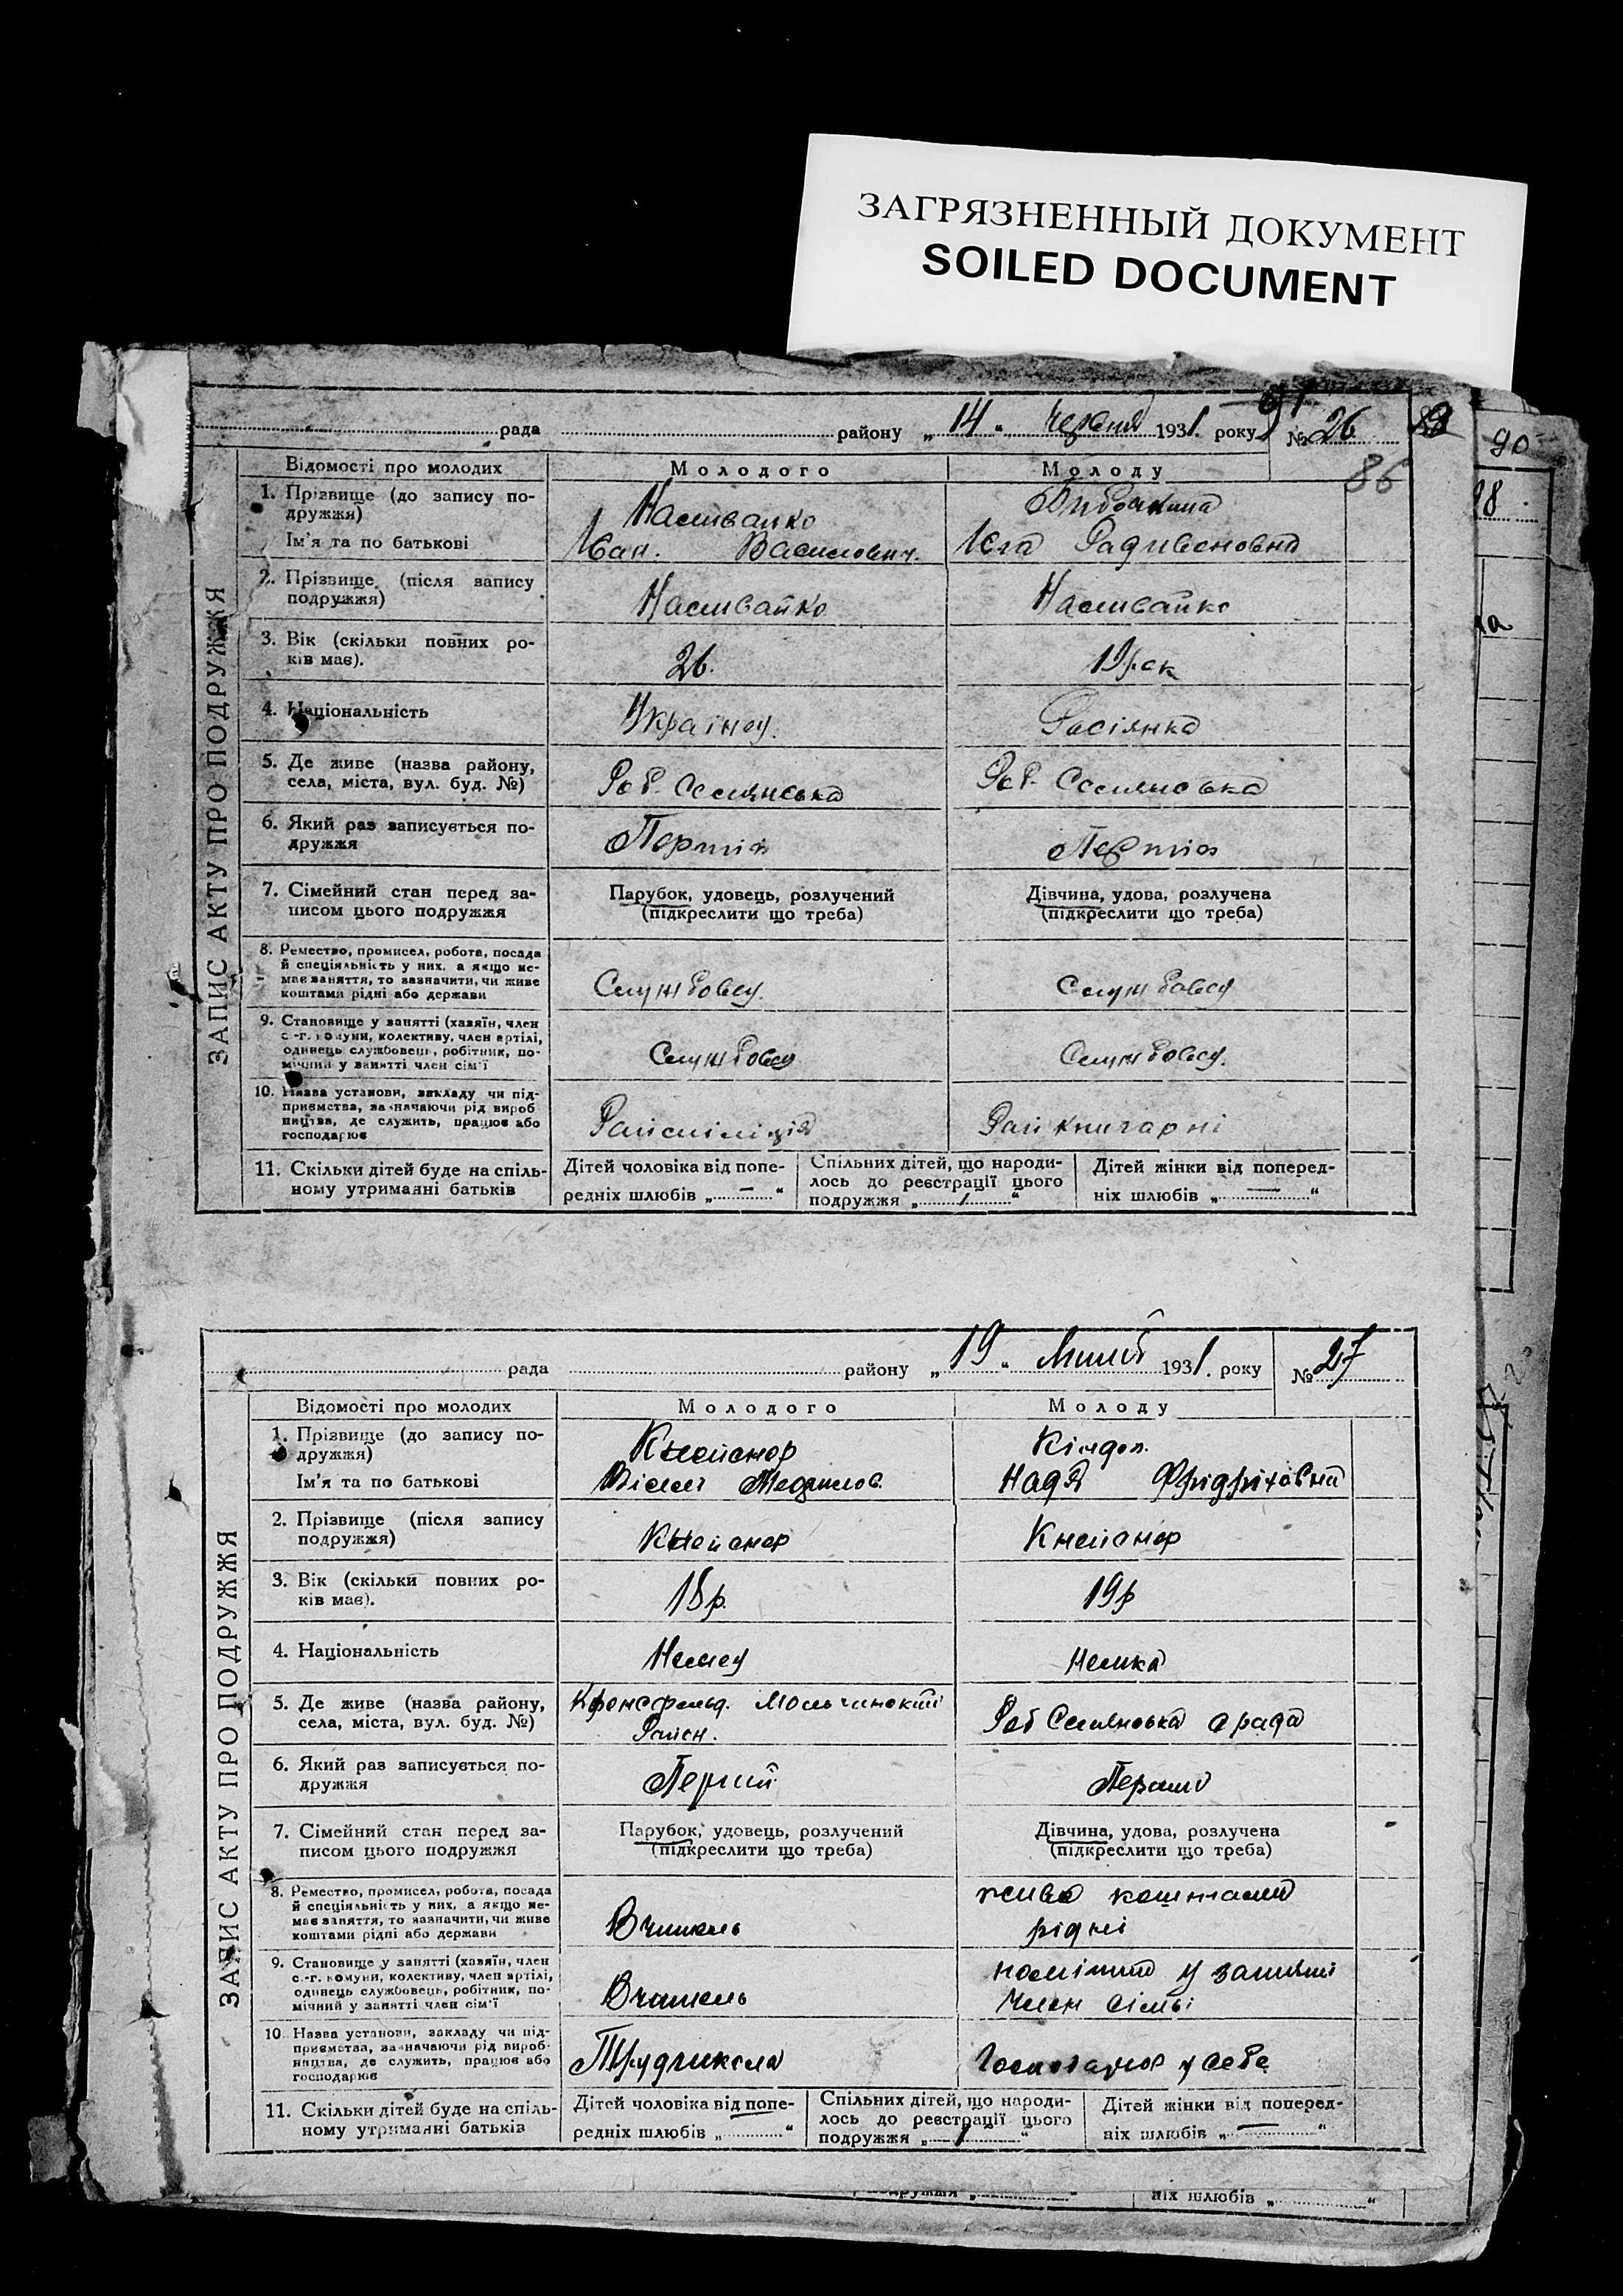 ЗАГРЯЗНЕННЫЙ ДОКУМЕНТ
SOILED DOCUMENT
90
ЗАПИС АКТУ ПРО ПОДРУЖЖЯ
рада району „14" червня 1931. року № 26
86
Відомості про молодих Молодого Молоду
1. Прізвище (до запису по-
дружжя)
Наливайко
Ім'я та по батькові Іван. Василович.
2. Прізвище (після запису
подружжя)
Наливайко Наливайко
3. Вік (скільки повних ро-
ків має).
26. 19 рок
4. Національність Українец. Расіянка
5. Де живе (назва району,
села, міста, вул. буд. №)
Роб. Селянська Роб. Селянська
6. Який раз записується по-
дружжя
Перший
7. Сімейний стан перед за-
писом цього подружжя
Парубок, удовець, розлучений
(підкреслити що треба)
Дівчина, удова, розлучена
(підкреслити що треба)
8. Ремество, промисел, робота, посада
й спеціяльність у них, а якщо не-
має заняття, то зазначити, чи живе
коштами рідні або держави
Службовец. Службовец
9. Становище у занятті (хазяїн, член
с.-г. комуни, колективу, член артілі,
одинець службовець, робітник, по-
мічний у занятті член сім'ї
Службовец Службовец.
10. Назва установи, закладу чи під-
приємства, зазначаючи рід вироб
ництва, де служить, працює або
господарює
Райміліція Райкнигарні
11. Скільки дітей буде на спіль-
ному утриманні батьків
Дітей чоловіка від попе-
редніх шлюбів „—"
Спільних дітей, що народи-
лось до реєстрації цього
подружжя „ "
Дітей жінки від поперед-
ніх шлюбів „—"
ЗАПИС АКТУ ПРО ПОДРУЖЖЯ
рада району „19" 1931. року № 27
Відомості про молодих Молодого Молоду
1. Прізвище (до запису по-
дружжя)
Ім'я та по батькові Надя Фрідріховна
2. Прізвище (після запису
подружжя)
3. Вік (скільки повних ро-
ків має).
18 р. 19 р
4. Національність Немец Немка
5. Де живе (назва району,
села, міста, вул. буд. №)
Район.
Роб Селянська срада
6. Який раз записується по-
дружжя
Перший
7. Сімейний стан перед за-
писом цього подружжя
Парубок, удовець, розлучений
(підкреслити що треба)
Дівчина, удова, розлучена
(підкреслити що треба)
8. Ремество, промисел, робота, посада
й спеціяльність у них, а якщо не-
має заняття, то зазначити, чи живе
коштами рідні або держави
Вчитель
живе коштами
рідні
9. Становище у занятті (хазяїн, член
с.-г. комуни, колективу, член артілі,
одинець службовець, робітник, по-
мічний у занятті член сім'ї
Вчитель
член сімьі
10. Назва установи, закладу чи під-
приємства, зазначаючи рід вироб-
ництва, де служить, працює або
господарює
Трудшкола Господарює у себе
11. Скільки дітей буде на спіль-
ному утриманні батьків
Дітей чоловіка від попе-
редніх шлюбів „ "
Спільних дітей, що народи-
лось до реєстрації цього
подружжя „ "
Дітей жінки від поперед-
ніх шлюбів „—"
подружжя „ " ніх шлюбів „ "